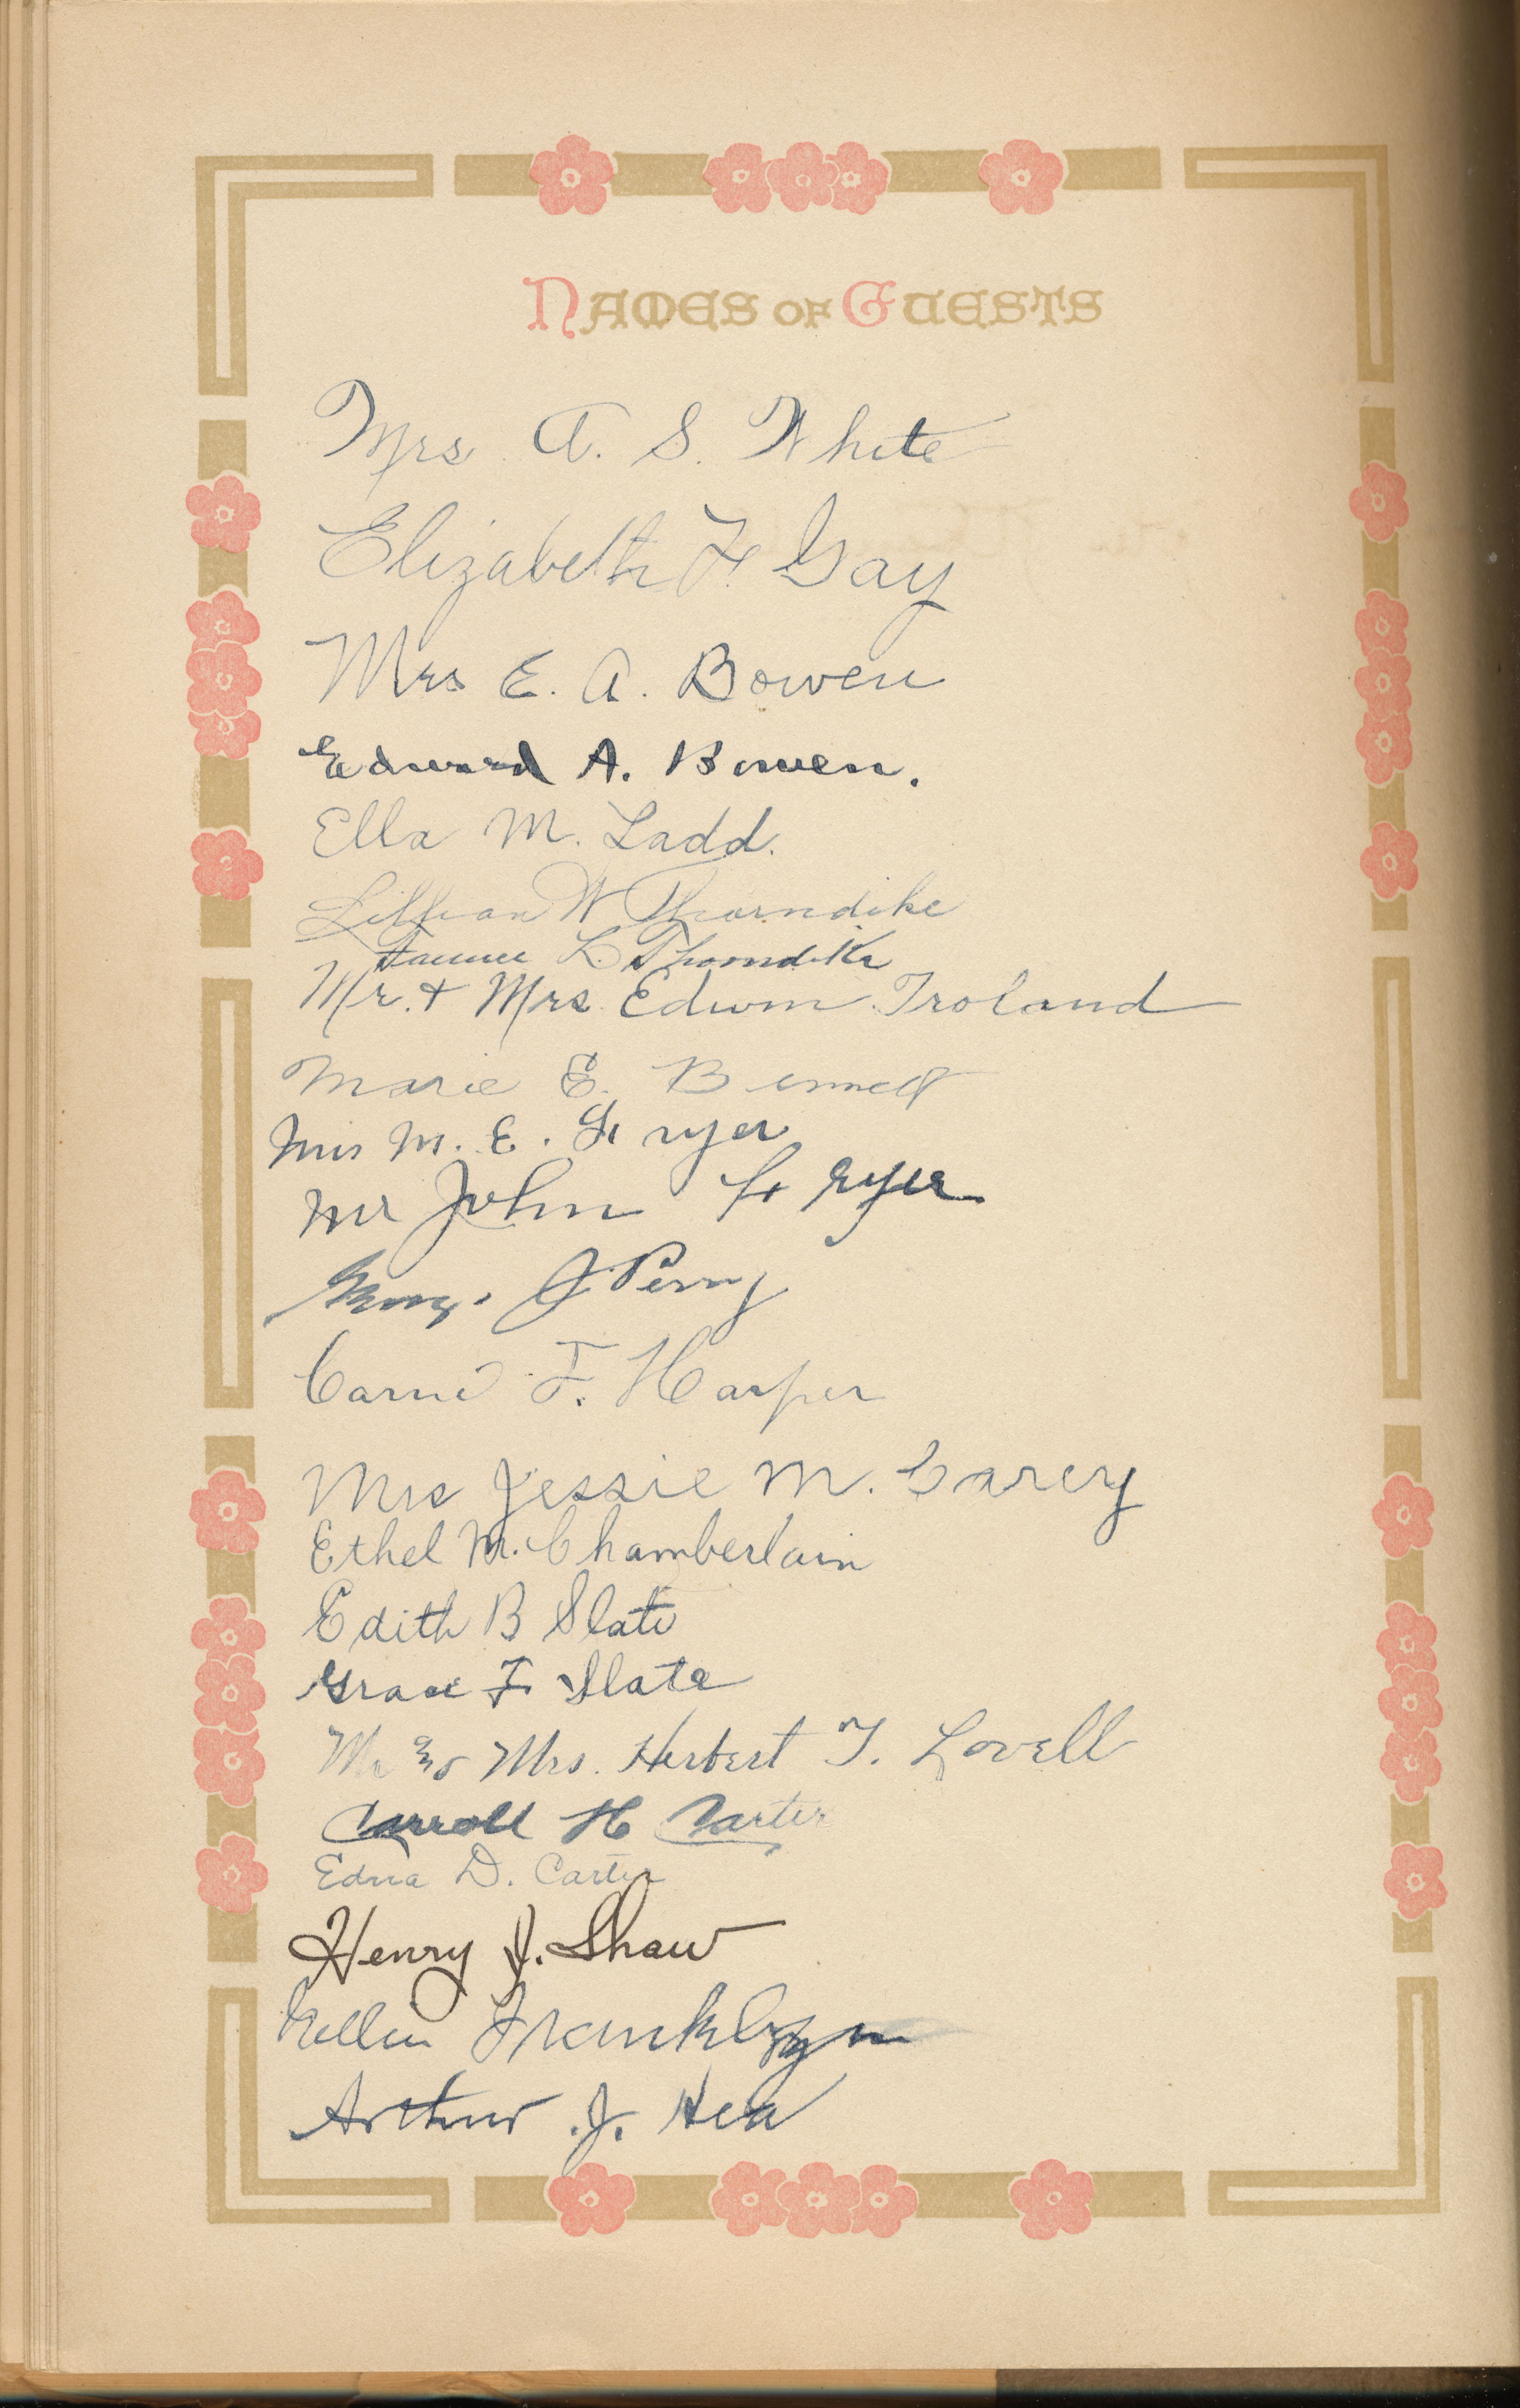 NAMES OF GUESTS
Mrs A. S. White
Elizabeth F. Gay
Mrs E. A. Bowen
Edward A. Bowen.
Ella M. Ladd.
Lillian W Thorndike
L. Thorndike
Mr. & Mrs. Edwin Troland
Marie E. Bennett
M. E. Fryer
Mr John Fryer
J. Perry
Carrie F. Harper
Mrs Jessie M. Carey
Ethel M. Chamberlain
Edith B Slate
Grace F. Slate
Mr & Mrs. Herbert T. Lovell
Carroll H Carter
Edna D. Carter
Henry J. Shaw
Franklyn
Arthur J.